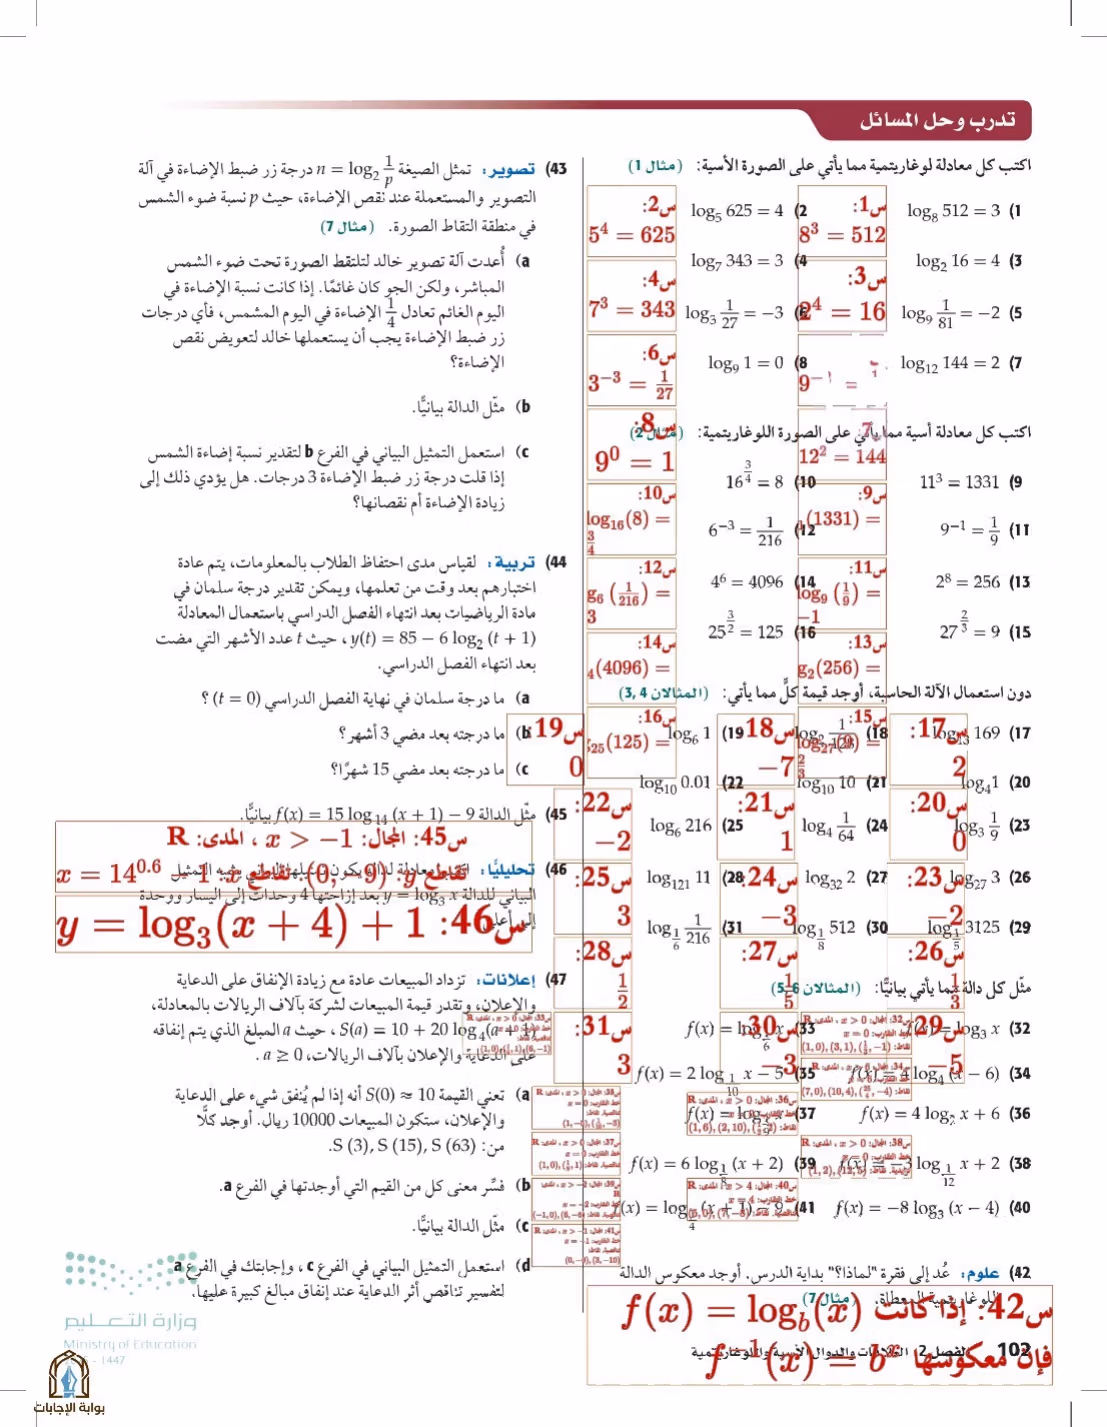 تدرب وحل المسائل
اكتب كل معادلة لوغاريتمية مما يأتي على الصورة الأسية: (مثال 1)
1) log₈ 512 = 3
س1:
8³ = 512
2) log₅ 625 = 4
س2:
5⁴ = 625
3) log₂ 16 = 4
س3:
2⁴ = 16
4) log₇ 343 = 3
س4:
7³ = 343
5) log₉ 1/81 = −2
6) log₃ 1/27 = −3
س6:
3⁻³ = 1/27
7) log₁₂ 144 = 2
12² = 144
8) log₉ 1 = 0
س8:
9⁰ = 1
اكتب كل معادلة أسية مما يأتي على الصورة اللوغاريتمية: (مثال 2)
9) 11³ = 1331
س9:
(1331) =
10) 16^(3/4) = 8
س10:
log₁₆(8) =
3/4
11) 9⁻¹ = 1/9
س11:
log₉ (1/9) =
−1
12) 6⁻³ = 1/216
س12:
g₆ (1/216) =
3
13) 2⁸ = 256
س13:
g₂(256) =
14) 4⁶ = 4096
س14:
₄(4096) =
15) 27^(2/3) = 9
س15:
log₂₇(9) =
2/3
16) 25^(3/2) = 125
س16:
₂₅(125) =
دون استعمال الآلة الحاسبة، أوجد قيمة كلٍّ مما يأتي: (المثالان 3, 4)
17) log₁₃ 169
س17:
2
18) log₂ 1/128
س18:
−7
19) log₆ 1
س19:
0
20) log₄ 1
س20:
0
21) log₁₀ 10
س21:
1
22) log₁₀ 0.01
س22:
−2
23) log₃ 1/9
س23:
−2
24) log₄ 1/64
س24:
−3
25) log₆ 216
س25:
3
26) log₂₇ 3
س26:
1/3
27) log₃₂ 2
س27:
1/5
28) log₁₂₁ 11
س28:
1/2
29) log_(1/5) 3125
س29:
−5
30) log_(1/8) 512
س30:
−3
31) log_(1/6) 1/216
س31:
3
مثّل كل دالة مما يأتي بيانيًّا: (المثالان 5-6)
32) f(x) = log₃ x
33) f(x) = log_(1/6) x
34) f(x) = 4 log₄ (x − 6)
35) f(x) = 2 log_(1/10) x − 5
36) f(x) = 4 log₂ x + 6
37) f(x) = log_(1/9) x
38) f(x) = −3 log_(1/12) x + 2
39) f(x) = 6 log_(1/8) (x + 2)
40) f(x) = −8 log₃ (x − 4)
41) f(x) = log_(1/4) (x + 1) − 9
42) علوم: عُد إلى فقرة "لماذا؟" بداية الدرس. أوجد معكوس الدالة
اللوغاريتمية المعطاة. (مثال 7)
س42: إذا كانت f(x) = log_b(x)
فإن معكوسها f⁻¹(x) = bˣ
43) تصوير: تمثل الصيغة n = log₂ 1/p درجة زر ضبط الإضاءة في آلة
التصوير والمستعملة عند نقص الإضاءة، حيث p نسبة ضوء الشمس
في منطقة التقاط الصورة. (مثال 7)
a) أُعدت آلة تصوير خالد لتلتقط الصورة تحت ضوء الشمس
المباشر، ولكن الجو كان غائمًا. إذا كانت نسبة الإضاءة في
اليوم الغائم تعادل 1/4 الإضاءة في اليوم المشمس، فأي درجات
زر ضبط الإضاءة يجب أن يستعملها خالد لتعويض نقص
الإضاءة؟
b) مثّل الدالة بيانيًّا.
c) استعمل التمثيل البياني في الفرع b لتقدير نسبة إضاءة الشمس
إذا قلت درجة زر ضبط الإضاءة 3 درجات. هل يؤدي ذلك إلى
زيادة الإضاءة أم نقصانها؟
44) تربية: لقياس مدى احتفاظ الطلاب بالمعلومات، يتم عادة
اختبارهم بعد وقت من تعلمها، ويمكن تقدير درجة سلمان في
مادة الرياضيات بعد انتهاء الفصل الدراسي باستعمال المعادلة
y(t) = 85 − 6 log₂ (t + 1) ، حيث t عدد الأشهر التي مضت
بعد انتهاء الفصل الدراسي.
a) ما درجة سلمان في نهاية الفصل الدراسي (t = 0) ؟
b) ما درجته بعد مضي 3 أشهر؟
c) ما درجته بعد مضي 15 شهرًا؟
45) مثّل الدالة f(x) = 15 log₁₄ (x + 1) − 9 بيانيًّا.
س45: المجال: x > −1 ، المدى: R
تقاطع y: (0, −9) تقاطع x: x = 14^0.6 − 1
46) تحليليًا:
البياني للدالة y = log₃ x بعد إزاحتها 4 وحدات إلى اليسار ووحدة
إلى أعلى
س46: y = log₃(x + 4) + 1
47) إعلانات: تزداد المبيعات عادة مع زيادة الإنفاق على الدعاية
والإعلان، وتقدر قيمة المبيعات لشركة بآلاف الريالات بالمعادلة،
S(a) = 10 + 20 log₄(a + 1) ، حيث a المبلغ الذي يتم إنفاقه
على الدعاية والإعلان بآلاف الريالات، a ≥ 0 .
a) تعني القيمة S(0) ≈ 10 أنه إذا لم يُنفق شيء على الدعاية
والإعلان، ستكون المبيعات 10000 ريال. أوجد كلًّا
من: S (3), S (15), S (63).
b) فسّر معنى كل من القيم التي أوجدتها في الفرع a.
c) مثّل الدالة بيانيًّا.
d) استعمل التمثيل البياني في الفرع c ، وإجابتك في الفرع a
لتفسير تناقص أثر الدعاية عند إنفاق مبالغ كبيرة عليها.
102 الفصل 2 العلاقات والدوال الأسية واللوغاريتمية
وزارة التعليم
Ministry of Education
- 1447
بوابة الإجابات